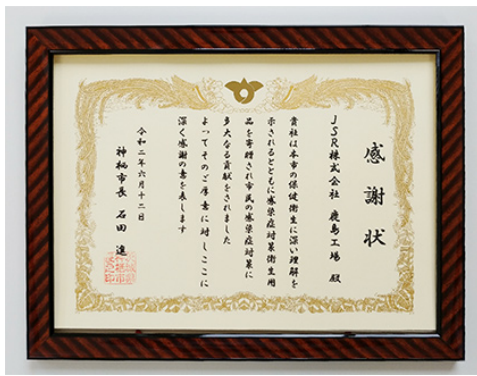 感謝状
JSR株式会社 鹿島工場 殿
貴社は本市の保健衛生に深い理解を
示されるとともに感染症対策衛生用
品を寄贈され市民の感染症対策に
多大なる貢献をされました
よってそのご厚志に対しここに
深く感謝の意を表します
令和二年六月十二日
神栖市長 石田 進